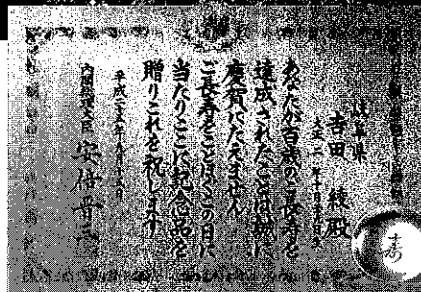 岐阜県
吉田 綾殿
大正二年十月十五日生
あなたが百歳のご長寿を
達成されたことは誠に
慶賀にたえません
ご長寿をことほぐこの日に
当たりここに記念品を
贈りこれを祝します
平成二十五年九月十五日
内閣総理大臣 安倍晋三
寿